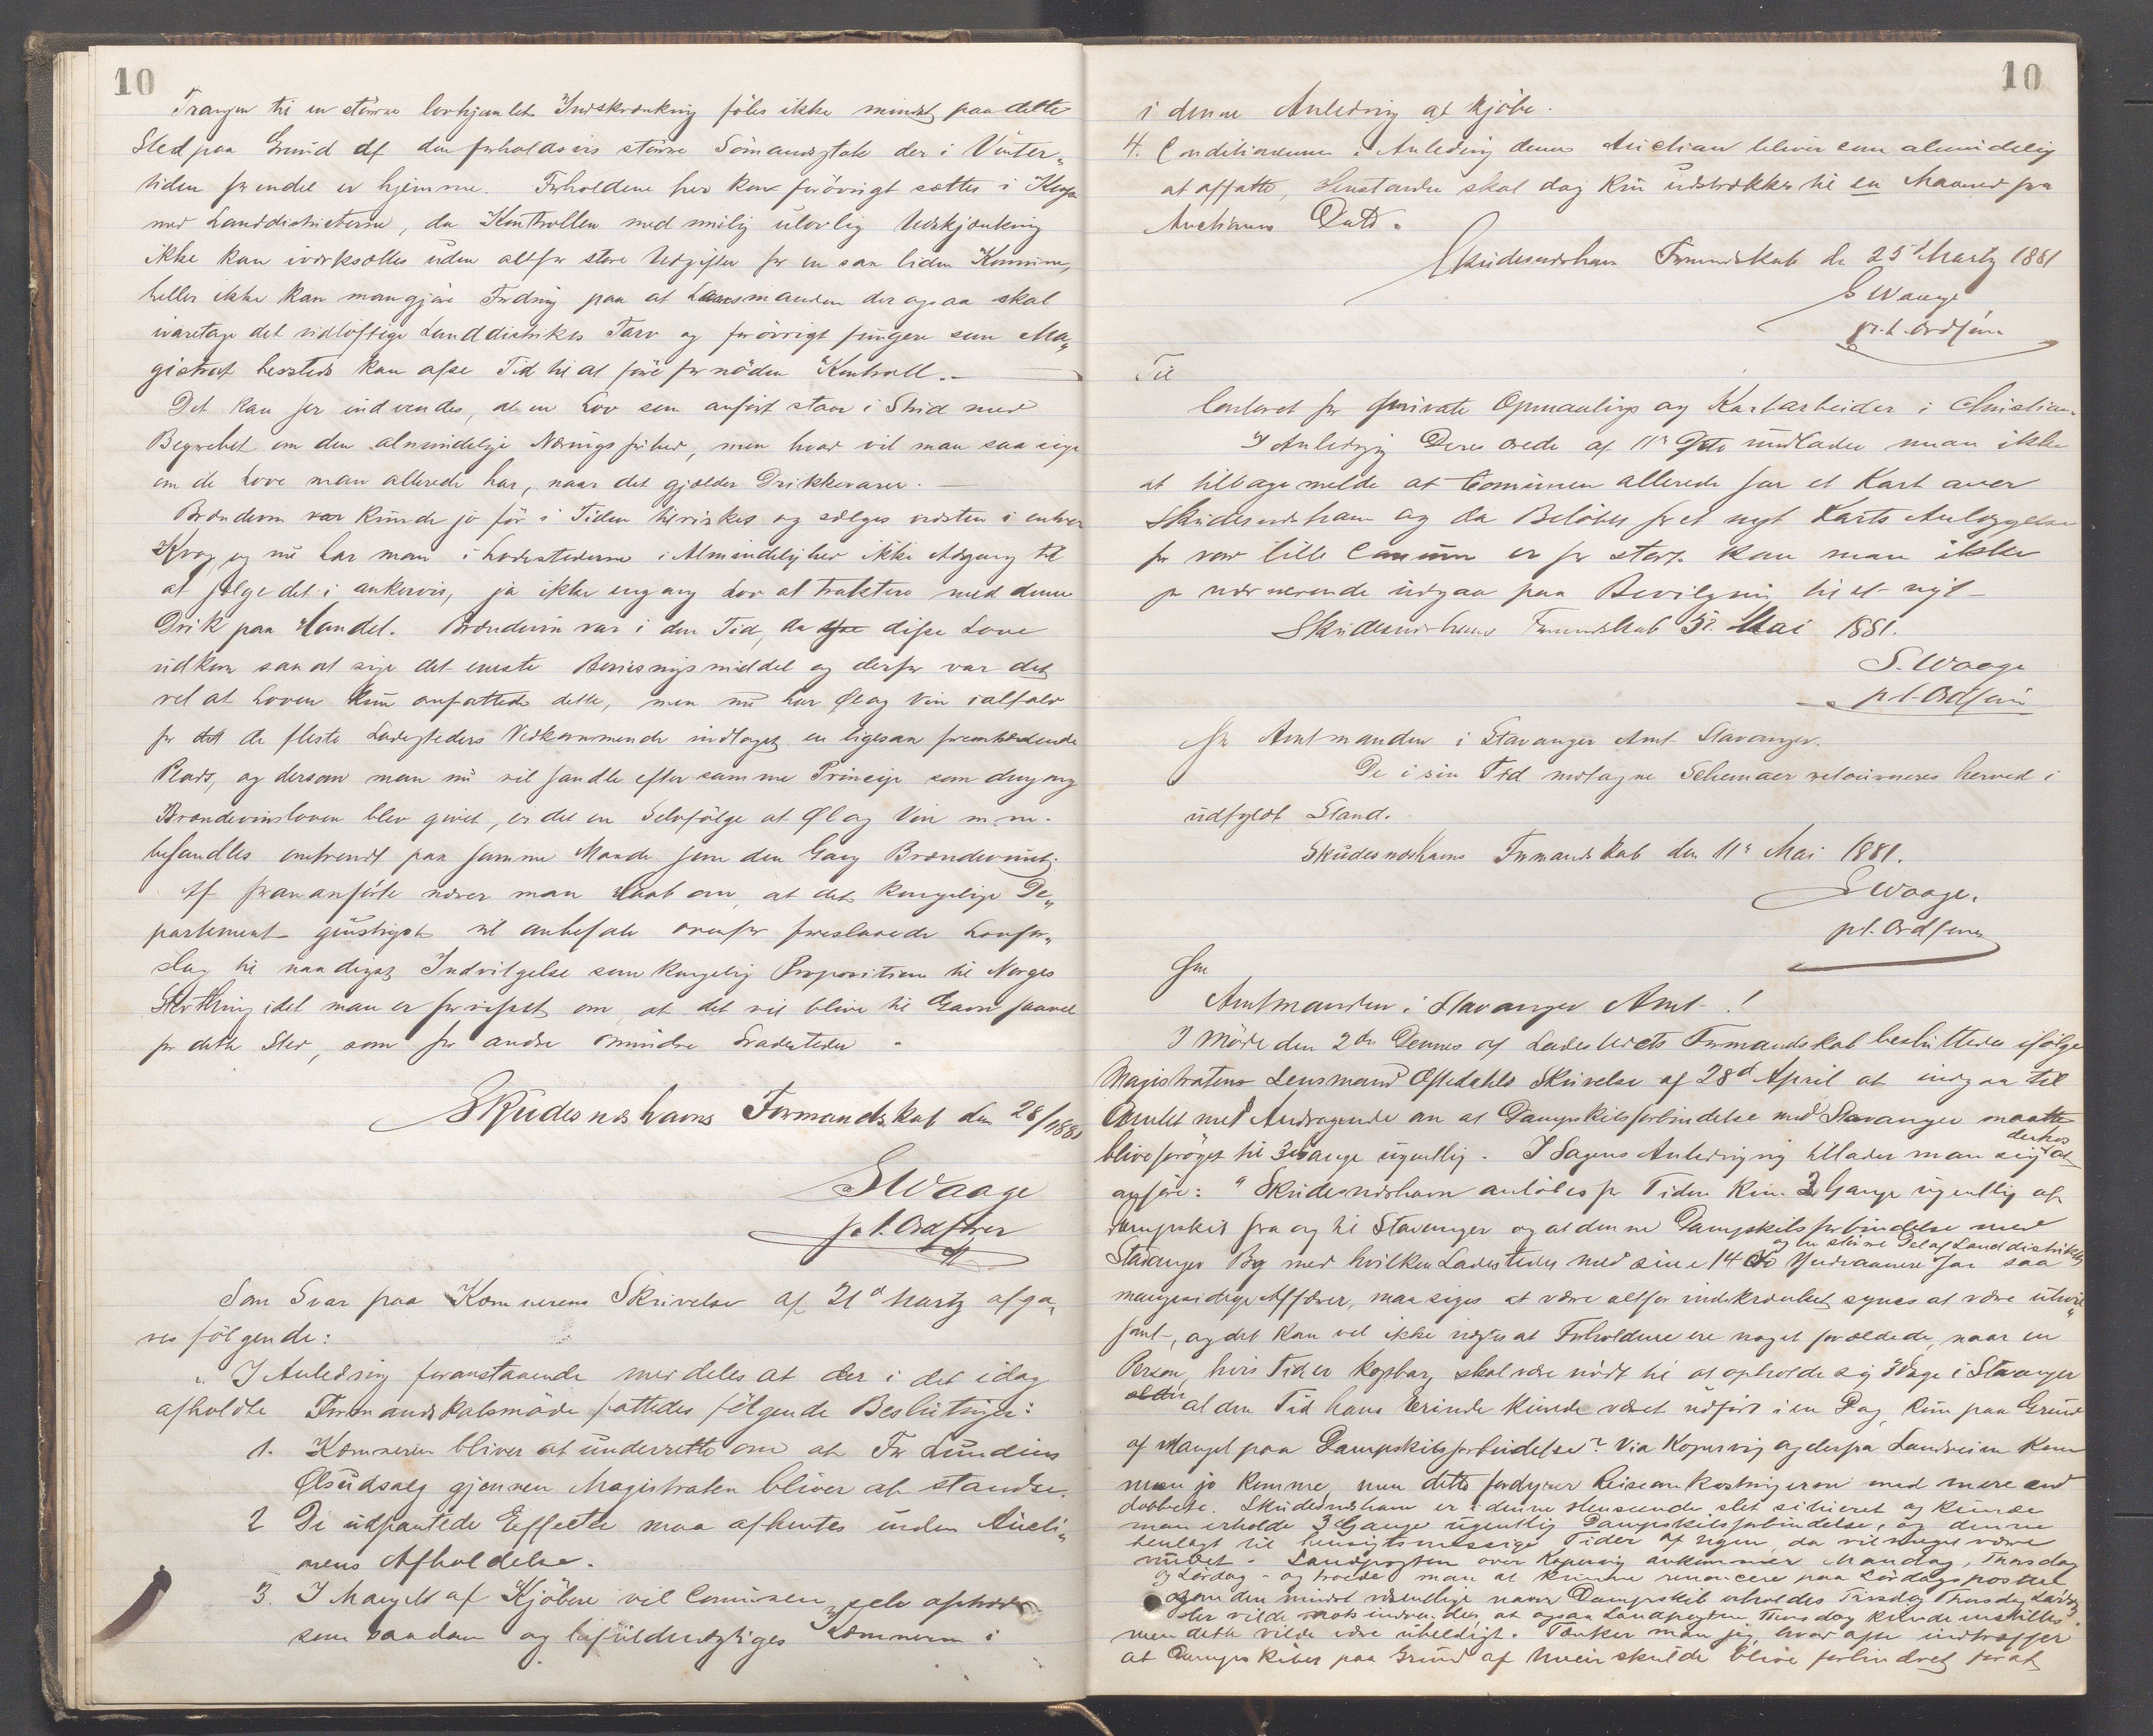 10
Trangen til en större lovhjemlet Indskrænkning föles ikke mindst paa dette
Sted paa Grund af den forholdsvis större Sömandsstok der i Vinter„
tiden for endel er hjemme. Forholdene her kan forövrigt sættes i
med Landdistricterne, da Kontrollen med mulig ulovlig Udskjænkning
ikke kan iværksættes uden altfor store Udgifter for en saa liden Komune,
heller ikke kan man gjöre Fordring paa at Lensmanden der ogsaa skal
ivaretage det vidlöftige Landdistrikts Tarv og forövrigt fungere som Ma„
gistrat hersteds kan afse Tid til at före fornöden Kontroll.—
Det kan her indvendes, at en Lov som anfört staar i Strid med
Begrebet om den almindelige Næringsfrihed, men hvad vil man saa sige
om de Love man allerede har, naar det gjælder Drikkevarer.—
Brændevin var kunde jo för i Tiden tilvirkes og sælges næsten i enhver
Krog, og nu har man i Ladestederne i Almindelighed ikke Adgang til
at sælge det i ankervis, ja ikke engang Lov at traktere med denne
Drik paa Handel. Brændevin var i den Tid, da disse Love
udkom saa at sige det eneste Berusningsmiddel og derfor var det
vel at Loven kun omfattede dette, men nu har Öl og Vin ialfald
for de fleste Ladesteders Vedkommende indtaget en ligesaa fremtrædende
Plads, og dersom man nu vil handle efter samme Princip som dengang
Brændevinsloven blev givet, er det en Selvfölge at Öl og Vin m.m.
behandles omtrendt paa samme Maade som den Gang Brændevinet.
Af foranförte nærer man Haab om, at det kongelige De„
partement gunstigst vil anbefale ovenfor foreslaaede Lovfor„
slag til naadigst Indvilgelse som kongelig Proposition til Norges
Storthing idet man er forvisset om at det vil blive til Gavn saavel
for dette Sted, som for andre mindre Ladesteder.
Skudesneshavns Formandskab den 28/1 1881
S Waage
p. t. Ordförer
Som Svar paa Kæmnerens Skrivelse af 21d Martz afga„
ves fölgende:
„I Anledning foranstaaende meddeles at der i det idag
afholdte Formandskabsmöde fattedes fölgende Beslutninger:
1. Kæmneren bliver at underrette om at Fr Lundeins
Ölsudsalg gjennem Magistraten bliver at standse.
2 De udpantede Effecter maa afhentes inden Aucti„
onens Afholdelse.
3. I Mangel af Kjöbere vil Comunen selv optræde
som saadan og befuldmægtiges Kæmneren i
10
i denne Anledning at kjöbe.
4. Conditionerne i Anledning denne Auction bliver som almindelig
at affatte, Henstanden skal dog kun udstrækkes til en Maaned fra
Auctionens Dato.
Skudesneshavn Formandskab de 25d Martz 1881
S Waage
p. t. Ordförer
Til
Contoret for private Opmaalings og Kartarbeider i Christian
I Anledning Deres ærede af 11te Dto undlader man ikke
at tilbagemelde at Comunen allerede har et Kart over
Skudesneshavn og da Belöbet for et nyt Karts Anlæggelse
for vor lille Comun er for stort kan man ikke
p nærværende indgaa paa Bevilgning til et nyt—
Skudesneshavns Formandskab 5te Mai 1881.
S. Waage
p. t. Ordförer
Hr Amtmanden i Stavanger Amt Stavanger.
De i sin Tid modtagne Schemaer retourneres herved i
udfyldt Stand.
Skudesneshavns Formandskab den 11te Mai 1881.
S Waage.
p t. Ordförer
Hr
Amtmanden i Stavanger Amt!
I Möde den 2den Dennes af Ladestedets Formandskab besluttedes ifölge
Magistratens Lensmand Oftedahls Skrivelse af 28d April at indgaa til
Amtet med Andragende om at Dampskibsforbindelse med Stavanger maatte
blive foröget til 3 Gange ugentlig. I Sagens Anledning tillader man sig derhos at
anföre: „Skudesneshavn anlöbes for Tiden kun 2 Gange ugentlig af
Dampskib fra og til Stavanger og at denne Dampskibsforbindelse med
Stavanger By med hvilken Ladestedet med sine 1400 Indvaanere og en större Del af Landdistriktet har saa
mangeartige Affærer, maa siges at være altfor indskrænket synes at være utvivl„
somt, og det kan vel ikke nægtes at Forholdene ere noget forældede, naar en
Person, hvis Tid er kostbar, skal være nödt til at opholde sig Dage i Stavanger
al den Tid hans Ærinde kunde været udfört i en Dag, kun paa Grund
af Mangel paa Dampskibsforbindelse? Via Kopervig og derfra Landveien kan
man jo komme, men dette fordyrer Reiseomkostningerne med mere end
dobbelte. Skudesneshavn er i denne Henseende slet situeret og kunde
man erholde 3 Gange ugentlig Dampskibsforbindelse, og denne
henlagt til hensigtsmæssige Tider af Ugen, da vil meget være
vundet. Landposten over Kopervig ankommer Mandag, Thorsdag
og Lördag — og troede man at kunne renoncere paa Lördagsposten
naar Dampskib anholdes Tirsdag Thorsdag Lördag
der vilde indvendes, at ogsaa Landposten Thorsdag kunde indstilles
men dette vilde være uheldigt. Tænker man sig, hvad ofte indtræffer
at Dampskibet paa Grund af Uveir skulde blive forhindret for at